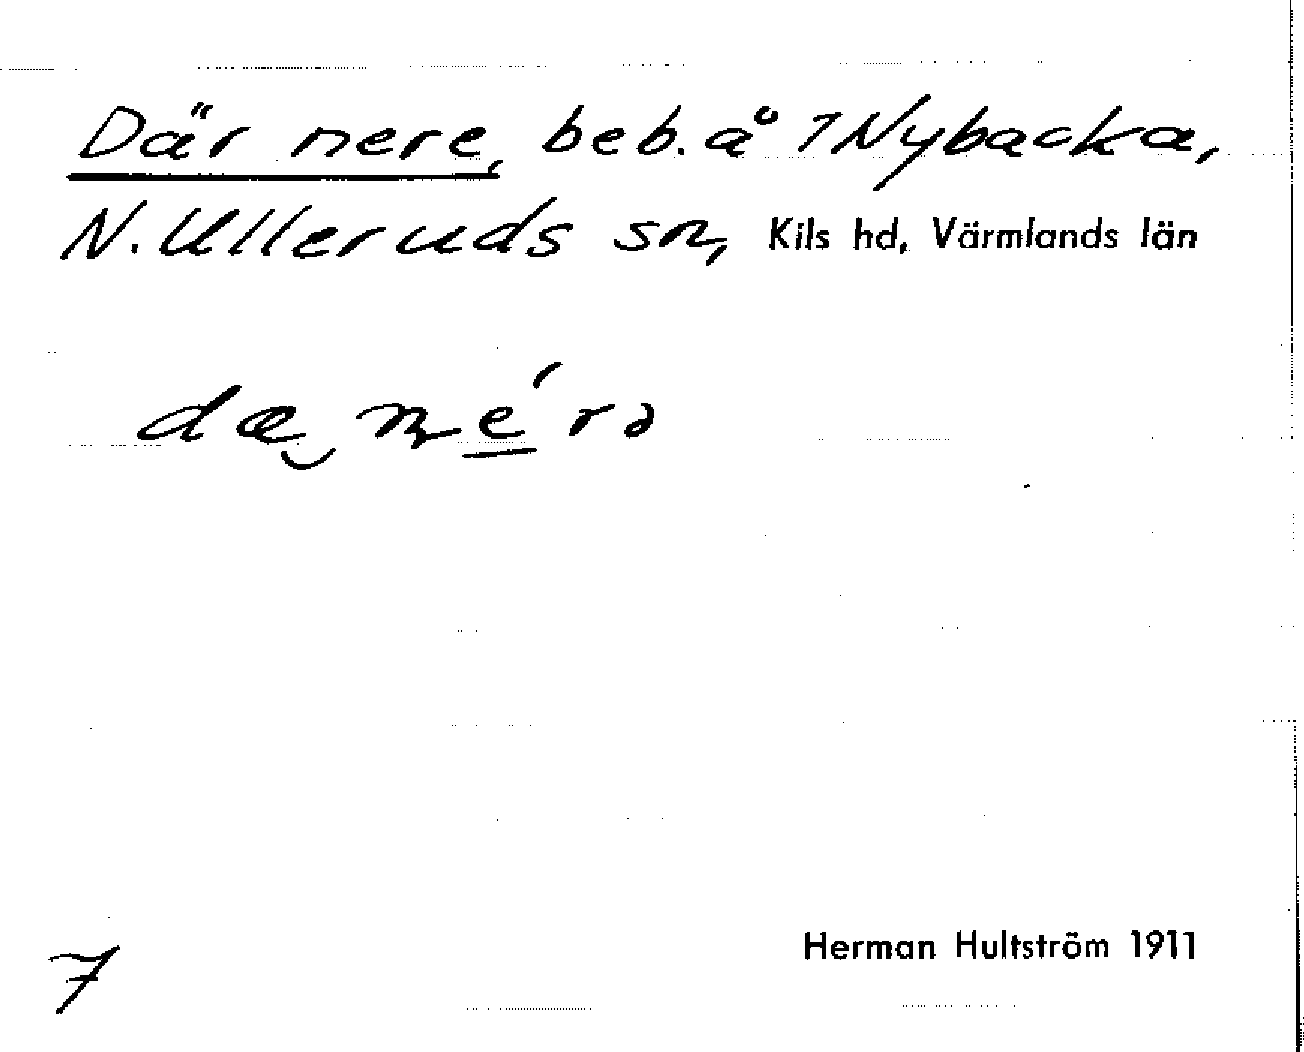 Där nere, beb. å 7 Nybacka,
N. Ulleruds sn, Kils hd, Värmlands län
dæ̮ né̲rə
Herman Hultström 1911
7